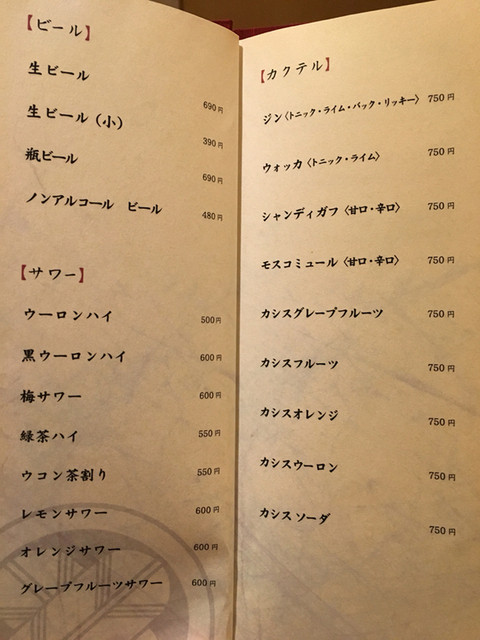 【ビール】
生ビール 690円
生ビール（小） 390円
瓶ビール 690円
ノンアルコール ビール 480円
【サワー】
ウーロンハイ 500円
黒ウーロンハイ 600円
梅サワー 600円
緑茶ハイ 550円
ウコン茶割り 550円
レモンサワー 600円
オレンジサワー 600円
グレープフルーツサワー 600円
【カクテル】
ジン〈トニック・ライム・バック・リッキー〉 750円
ウォッカ〈トニック・ライム〉 750円
シャンディガフ〈甘口・辛口〉 750円
モスコミュール〈甘口・辛口〉 750円
カシスグレープフルーツ 750円
カシスフルーツ 750円
カシスオレンジ 750円
カシスウーロン 750円
カシスソーダ 750円